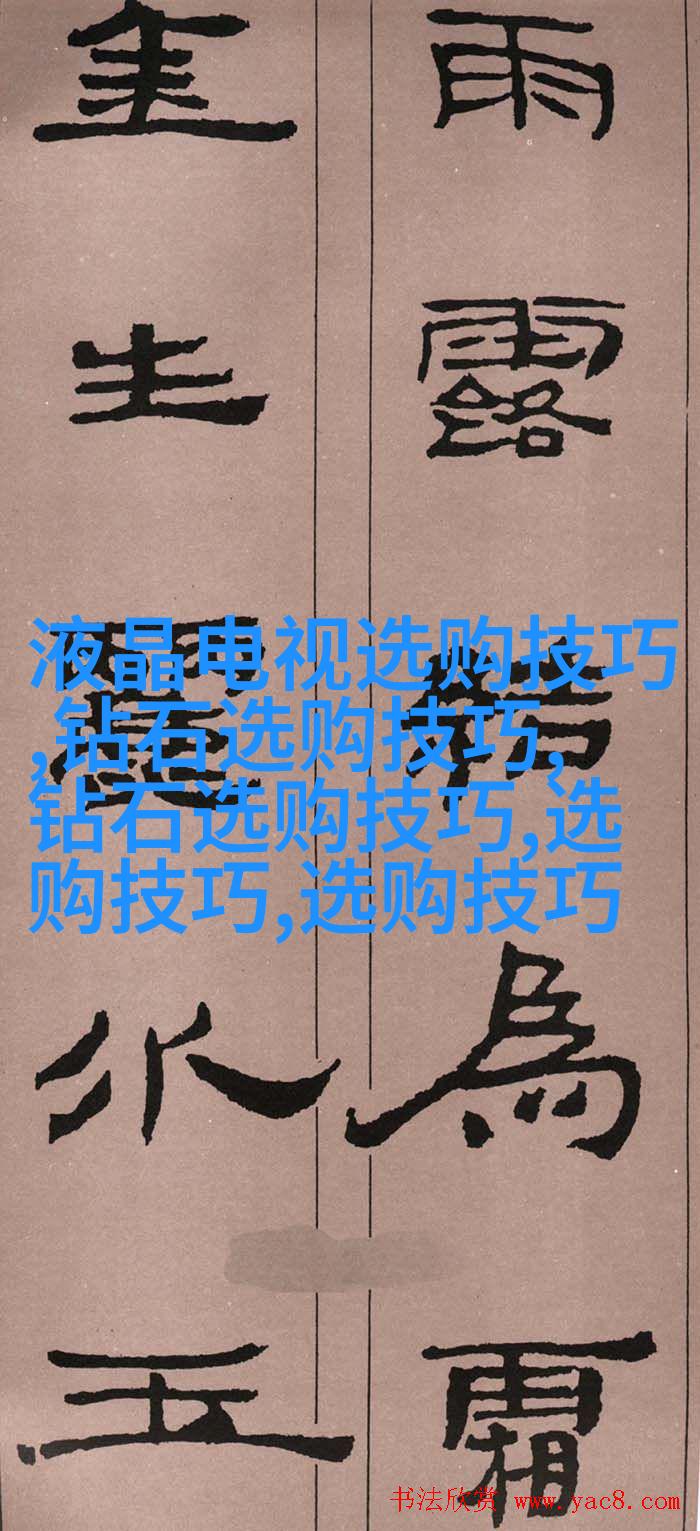 雨露結為霜
金生麗水玉
液晶电视选购技巧
,钻石选购技巧,
钻石选购技巧,选
购技巧,选购技巧
书法欣赏 www.yac8.com